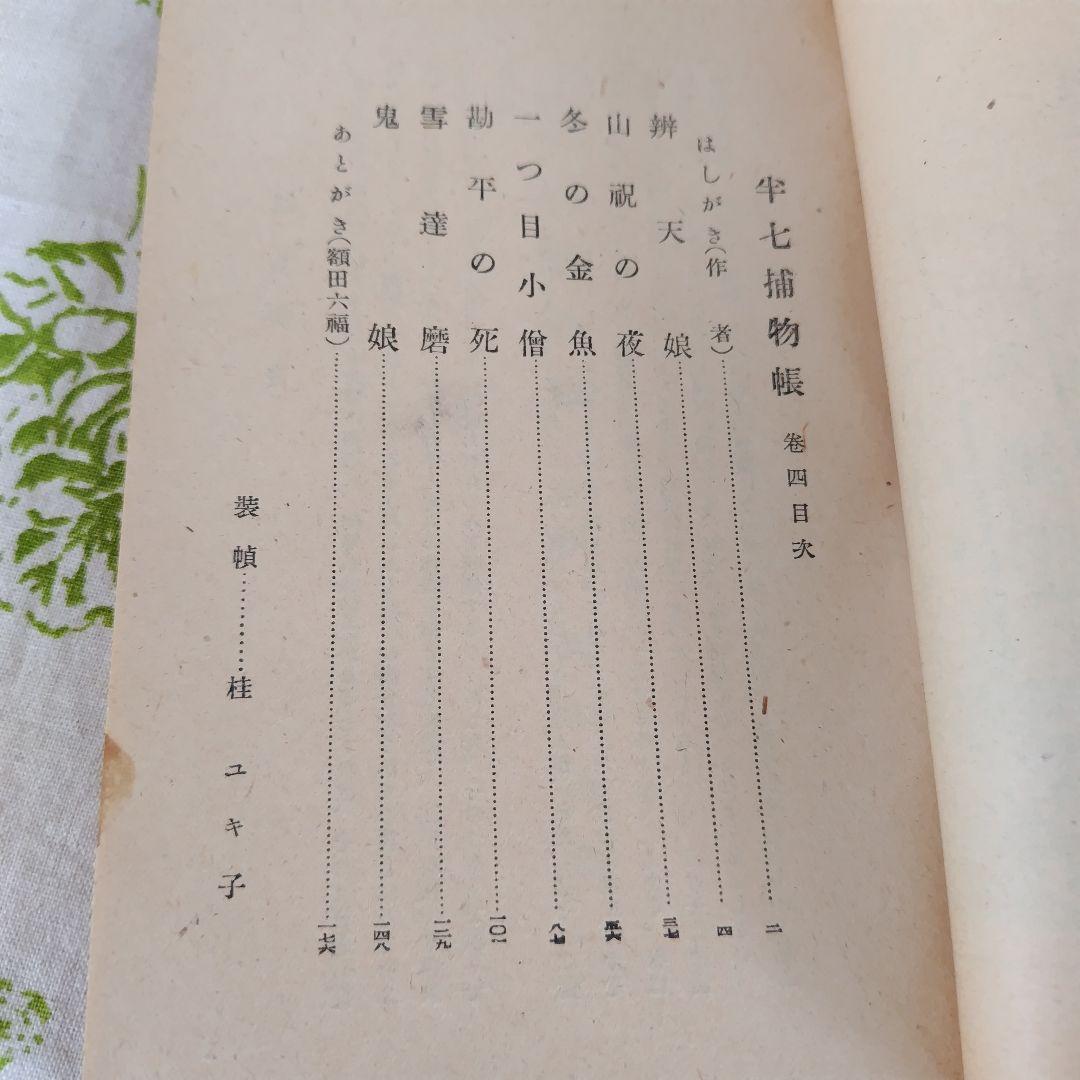 半七捕物帳 卷四目次
はしがき(作者)……………………二
辨天娘……………………四
山祝の夜……………………三七
冬の金魚……………………五六
一つ目小僧……………………八七
勘平の死……………………一〇一
雪達磨……………………一二九
鬼娘……………………一四八
あとがき(額田六福)……………………一七六
裝幀…………桂ユキ子